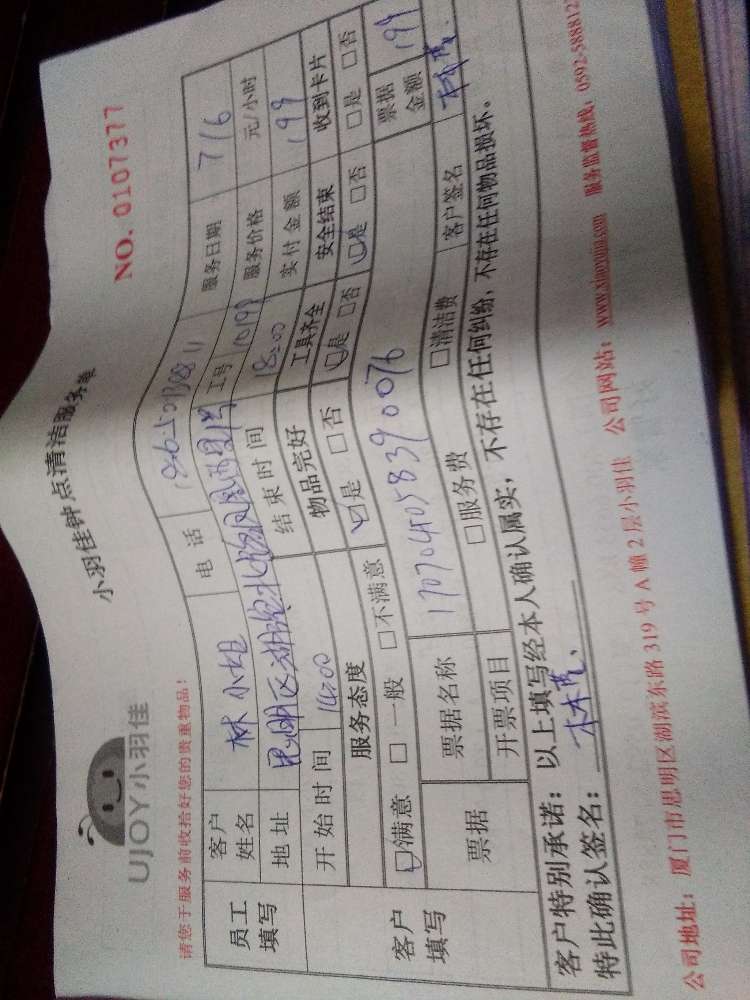 UJOY小羽佳
小羽佳钟点清洁服务单
NO. 0107377
请您于服务前收拾好您的贵重物品!
员工填写
客户姓名 林小姐 电话 服务日期 7/6
地址 思明区湖滨北路 工号 服务价格 元/小时
开始时间 14:00 结束时间 18:00 实付金额 199
客户填写
服务态度 物品完好 工具齐全 安全结束 收到卡片
☑满意 □一般 □不满意 ☑是 □否 ☑是 □否 ☑是 □否 □是 □否
票据 票据名称 170704058390076 票据金额 199
开票项目 □服务费 □清洁费 客户签名
客户特别承诺:以上填写经本人确认属实,不存在任何纠纷,不存在任何物品损坏。
特此确认签名:
公司地址:厦门市思明区湖滨东路319号A幢2层小羽佳 公司网站: 服务监督热线:0592-588812